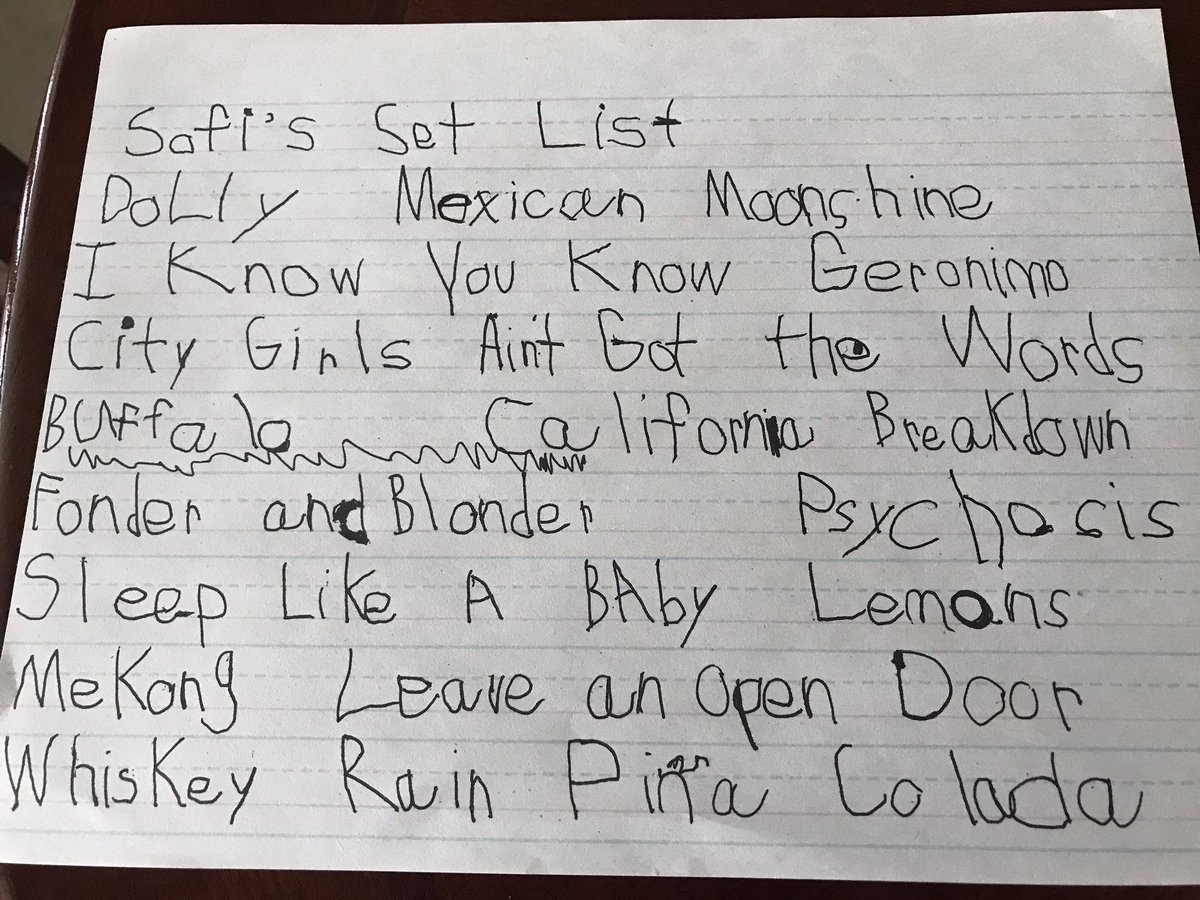 Sofi's Set List
DoLLy Mexican Moonshine
I Know You Know Geronimo
City Girls Ain't Got the Words
BUffalo California Breakdown
Fonder and Blonder Psychosis
Sleep Like A BAby Lemons
MeKong Leave an open Door
Whiskey Rain Piña Colada